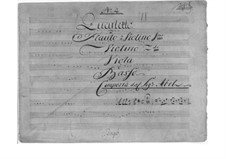 Quartetto
Flauto Violino 1mo
Violino 2do
Viola
e
Basso
Composti dal Sigr Abel